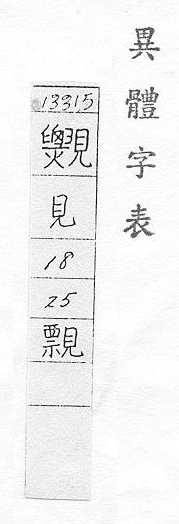 異體字表
13315
見
18
25
䙳